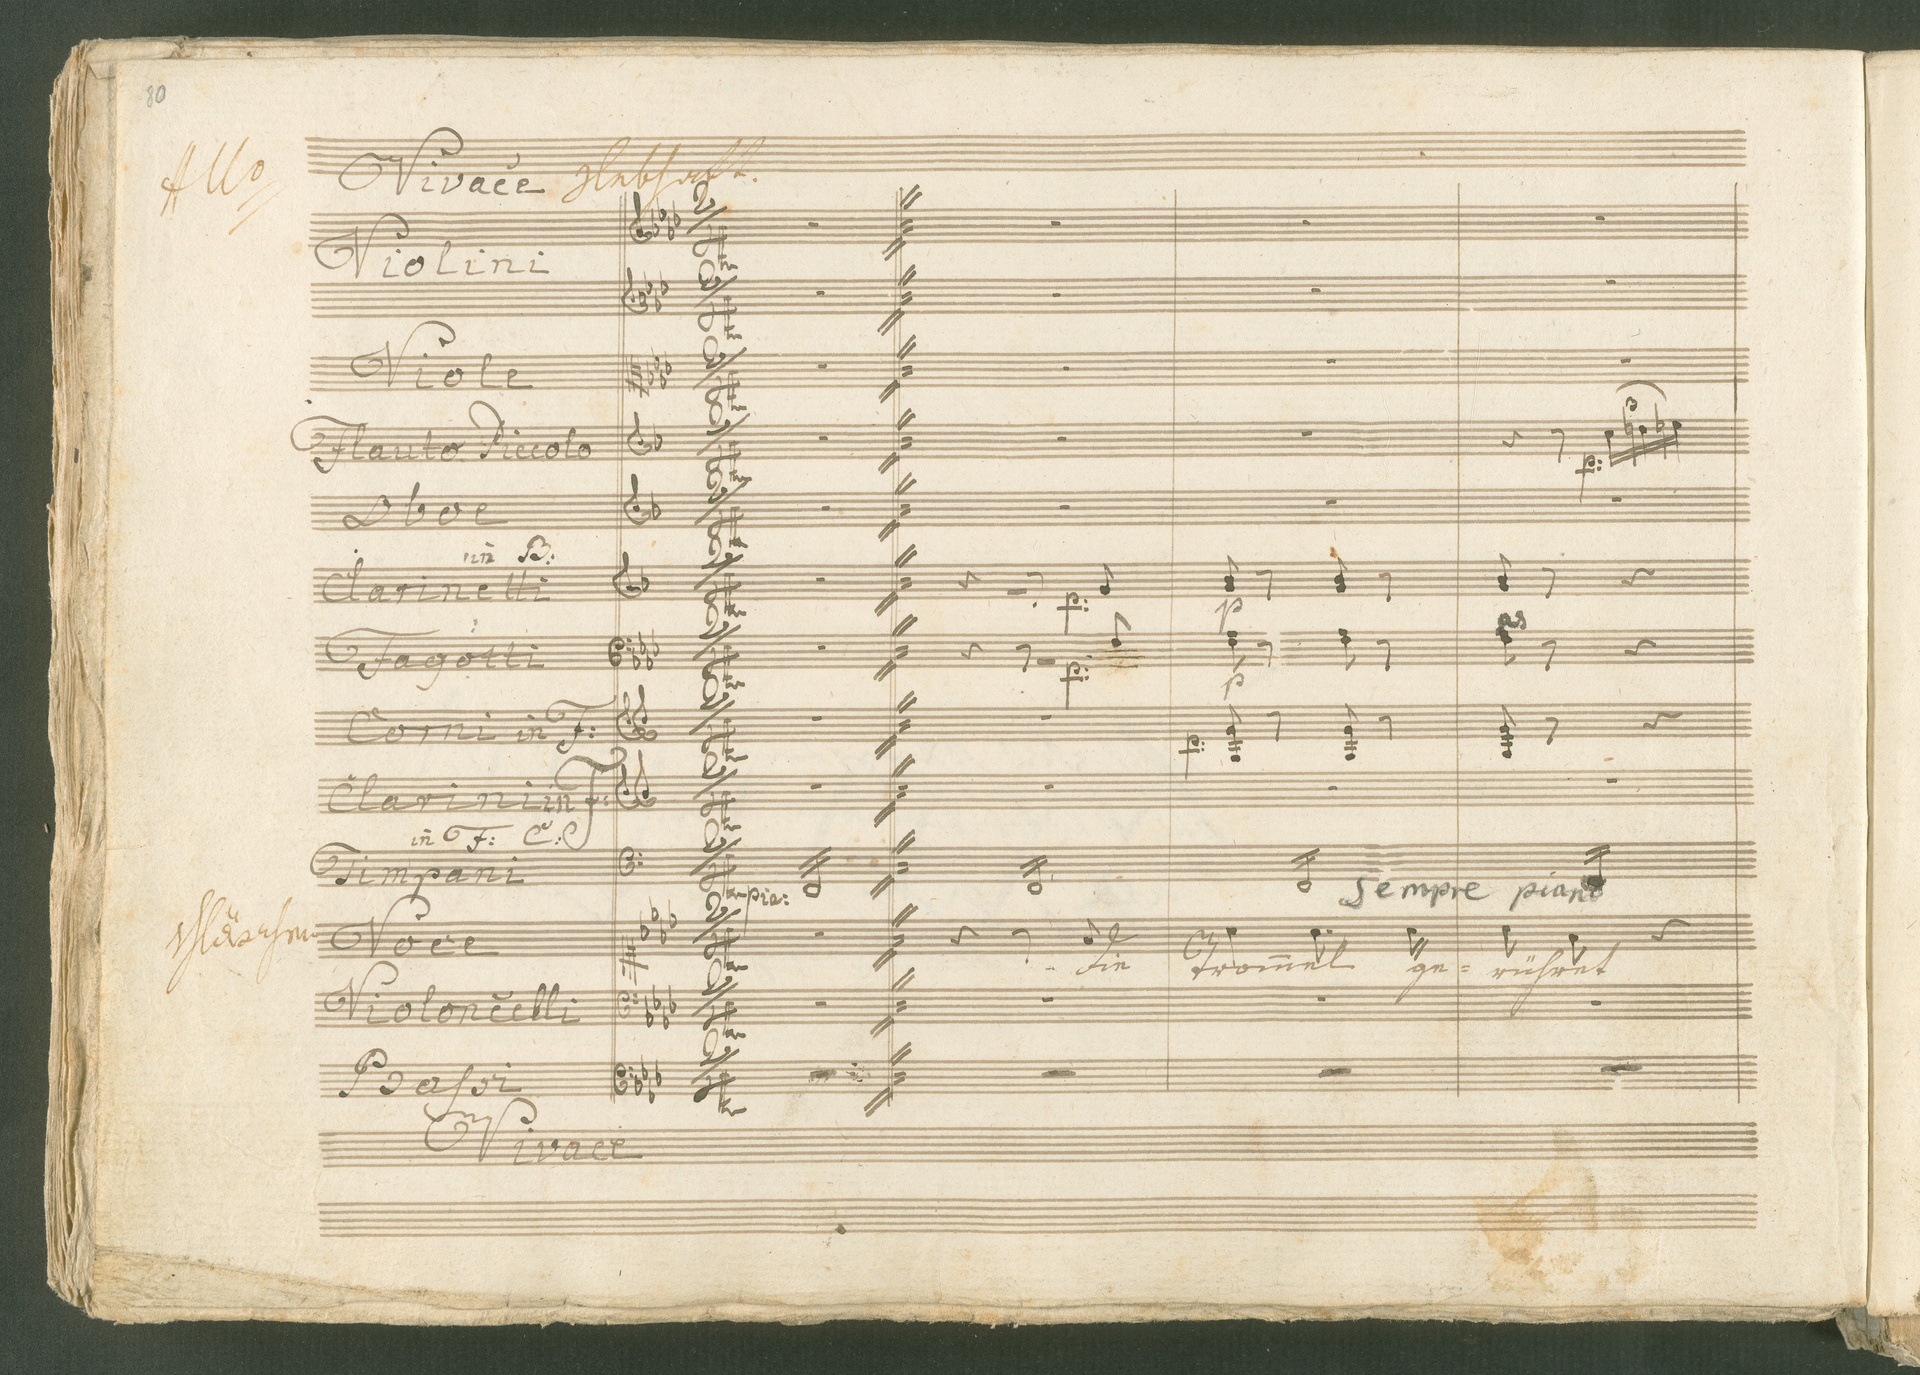 80
Allo
Vivace Lebhaft.
Violini
Viole
Flauto Piccolo
3
p:
Oboe
in B:
Clarinetti
p: p
as
Fagotti
p: p
Corni in F:
p:
Clarini in F:
in F: C:
Timpani
pia: sempre piano
Klärchen Voce
die Trom̄el ge= rühret
Violoncelli
Bassi
Vivace